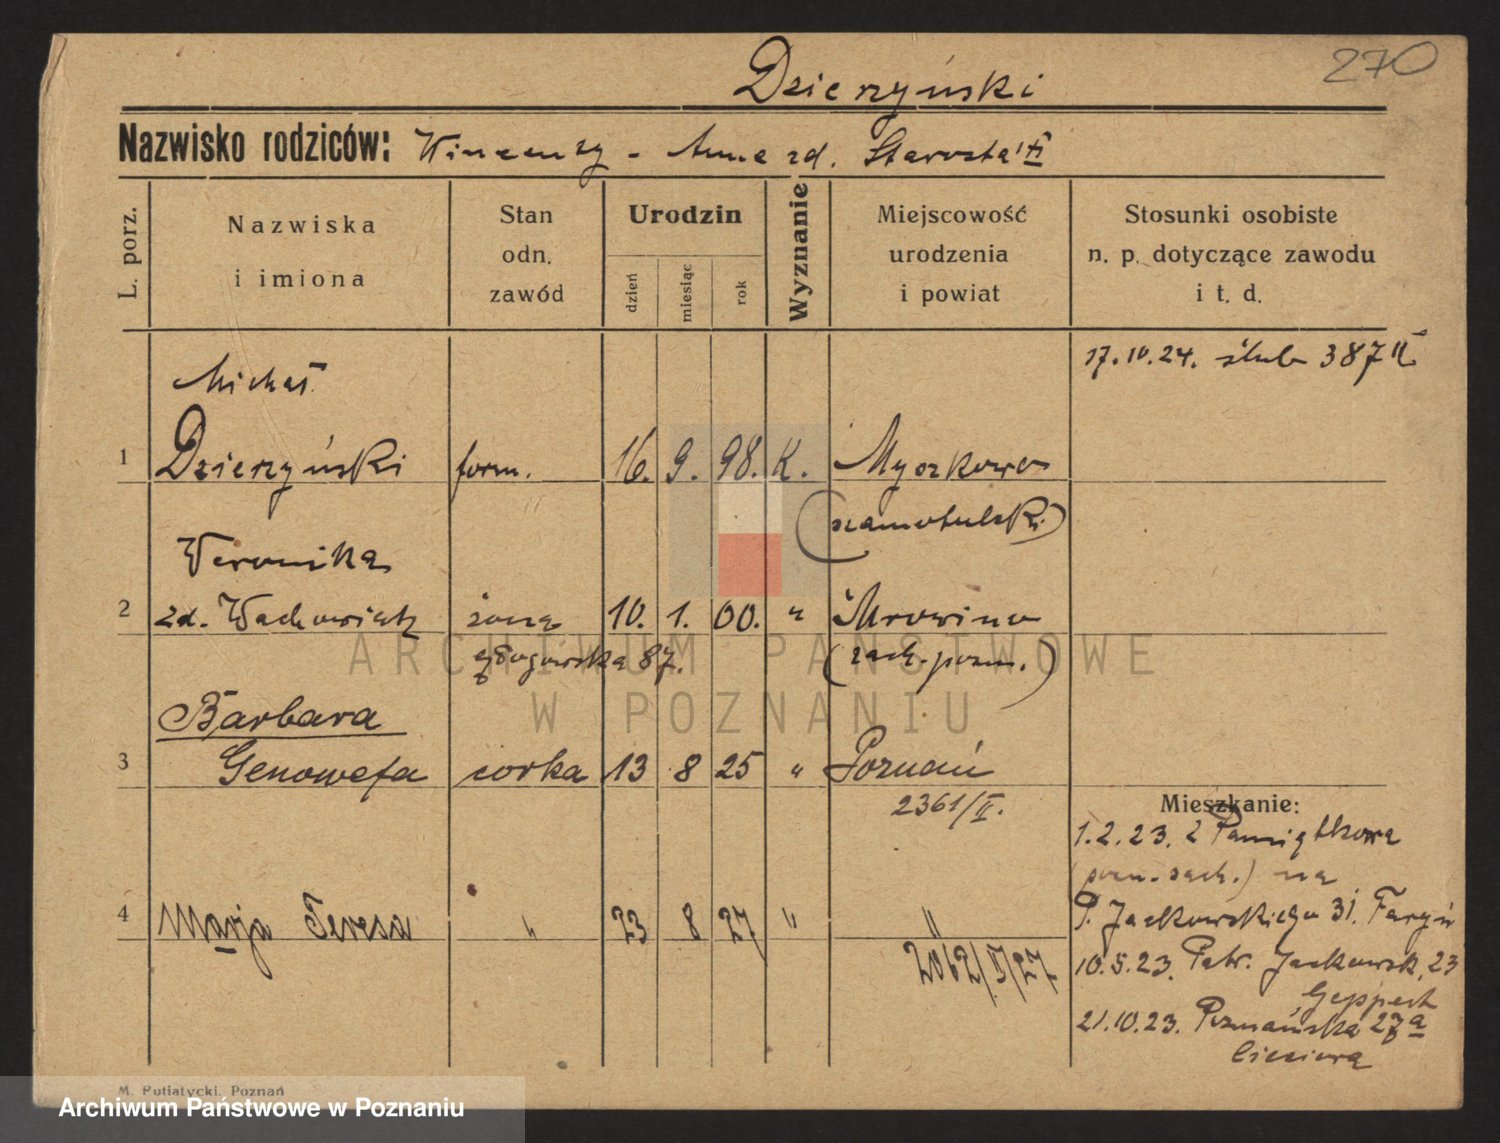 270
Dzierzyński
Nazwisko rodziców: Wincenty - Anna zd. Starosta
L. porz.
Nazwiska i imiona
Stan odn. zawód
Urodzin
dzień miesiąc rok
Wyznanie
Miejscowość urodzenia i powiat
Stosunki osobiste n. p. dotyczące zawodu i t. d.
17.10.24. ślub 387 II
Michał
1 Dzierzyński form. 16. 9. 98. K. Myszkowo
(szamotulski)
Weronika
2 zd. Wachowiak żona 10. 1. 00. " Mrowino
87. (zach. pozn.)
Barbara
3 Genowefa córka 13 8 25 " Poznań
2361/II.
4 Marja Teresa " 23 8 27 " "
2062/II/27
Mieszkanie:
1.2.23. z Pamiątkowa
(pozn. zach.) na
P. Jackowskiego 31.
10.5.23. Patr. Jackowsk. 23
Geppert
21.10.23. Poznańska 27a
M. Putiatycki, Poznań
ARCHIWUM PAŃSTWOWE
W POZNANIU
Archiwum Państwowe w Poznaniu